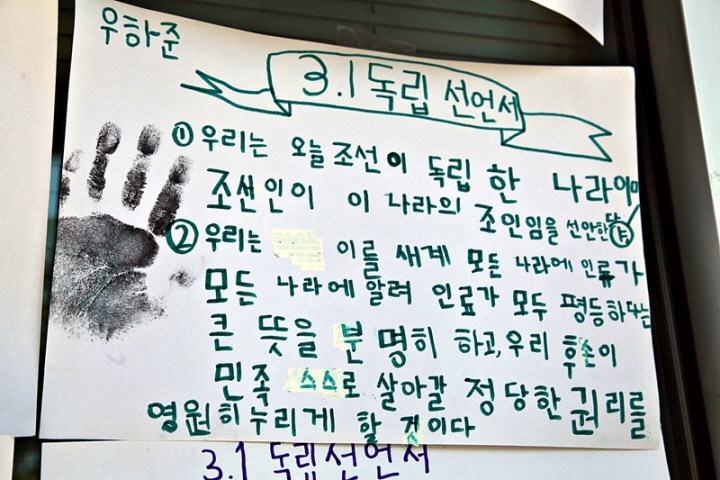 우하준
3.1 독립 선언서
① 우리는 오늘 조선이 독립 한 나라이며
조선인이 이 나라의 조인임을 선안한다
② 우리는 이를 새계 모든 나라에 인류가
모든 나라에 알려 인료가 모두 평등하다는
큰 뜻을 분명히 하고, 우리 후손이
민족 스스로 살아갈 정당한 권리를
영원히 누리게 할 것이다
3.1 독립선언서